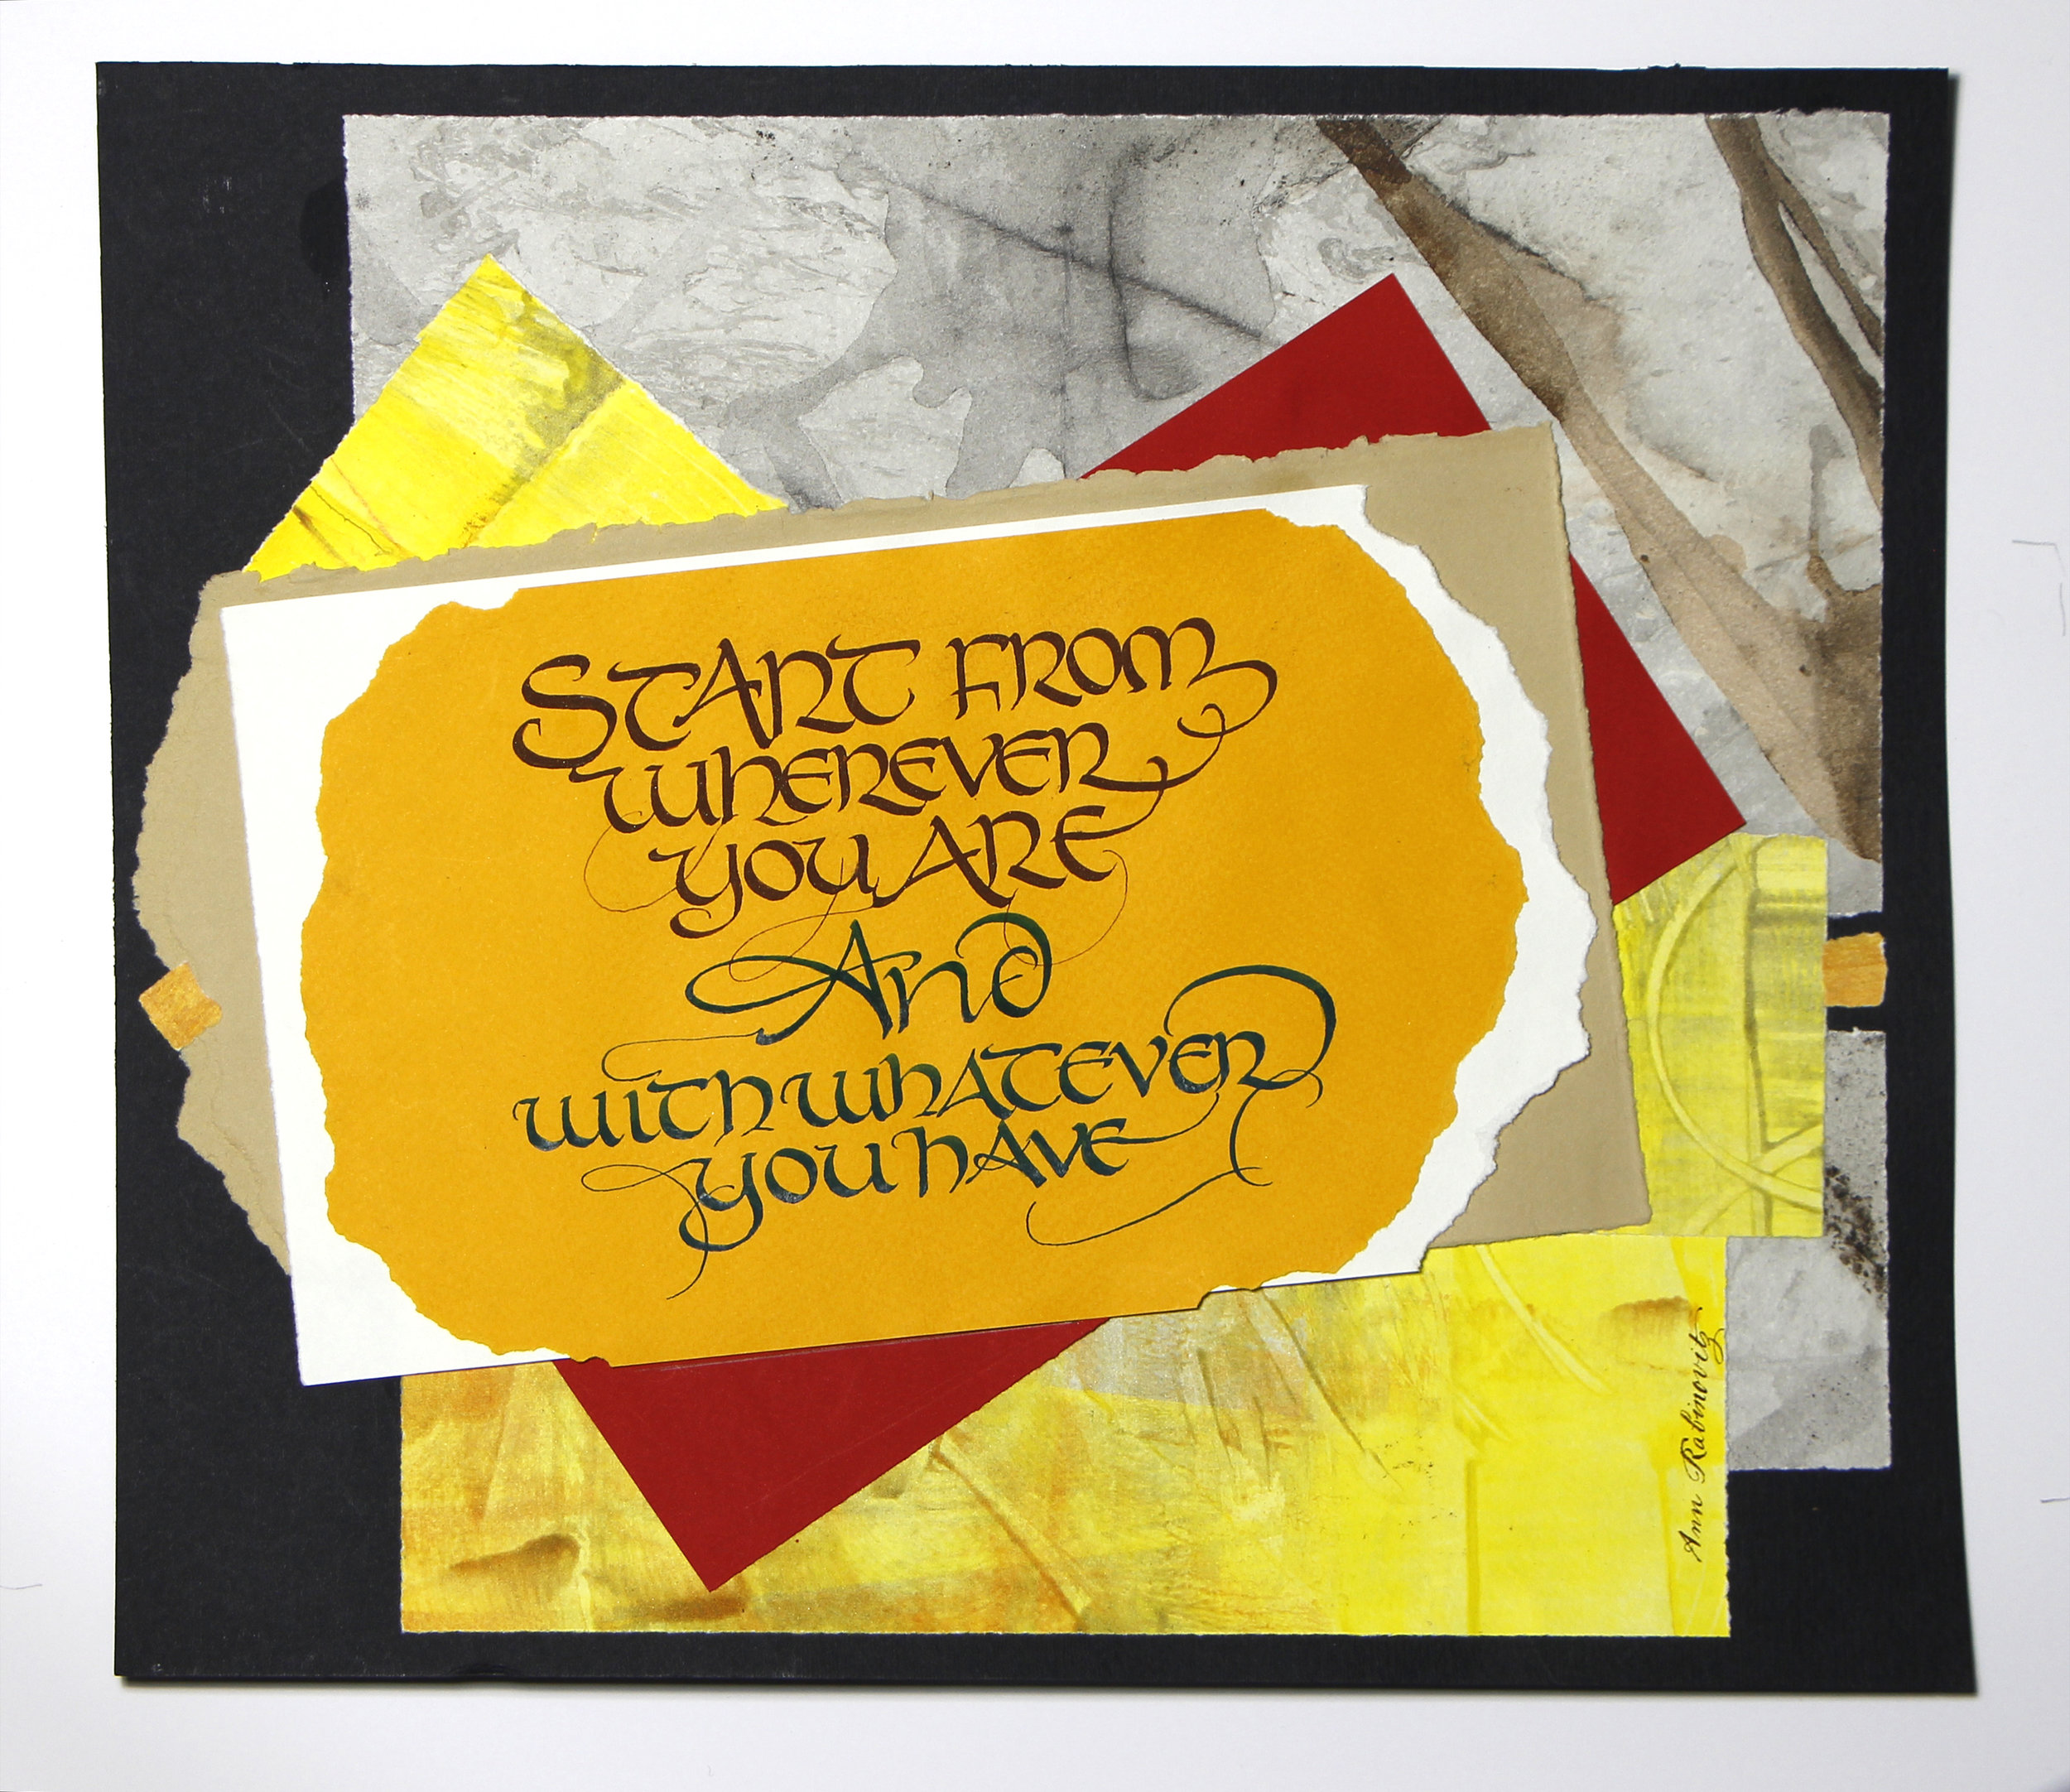 START FROM
WHEREVER
YOU ARE
And
WITH WHATEVER
YOU HAVE
Ann Rabinovitz